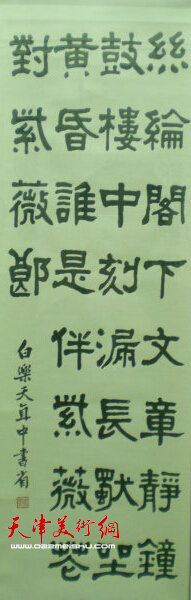 絲綸閣下文章靜鐘
鼓樓中刻漏長獨坐
黃昏誰是伴紫薇花
對紫薇郎
白樂天直中書省
天津美術網